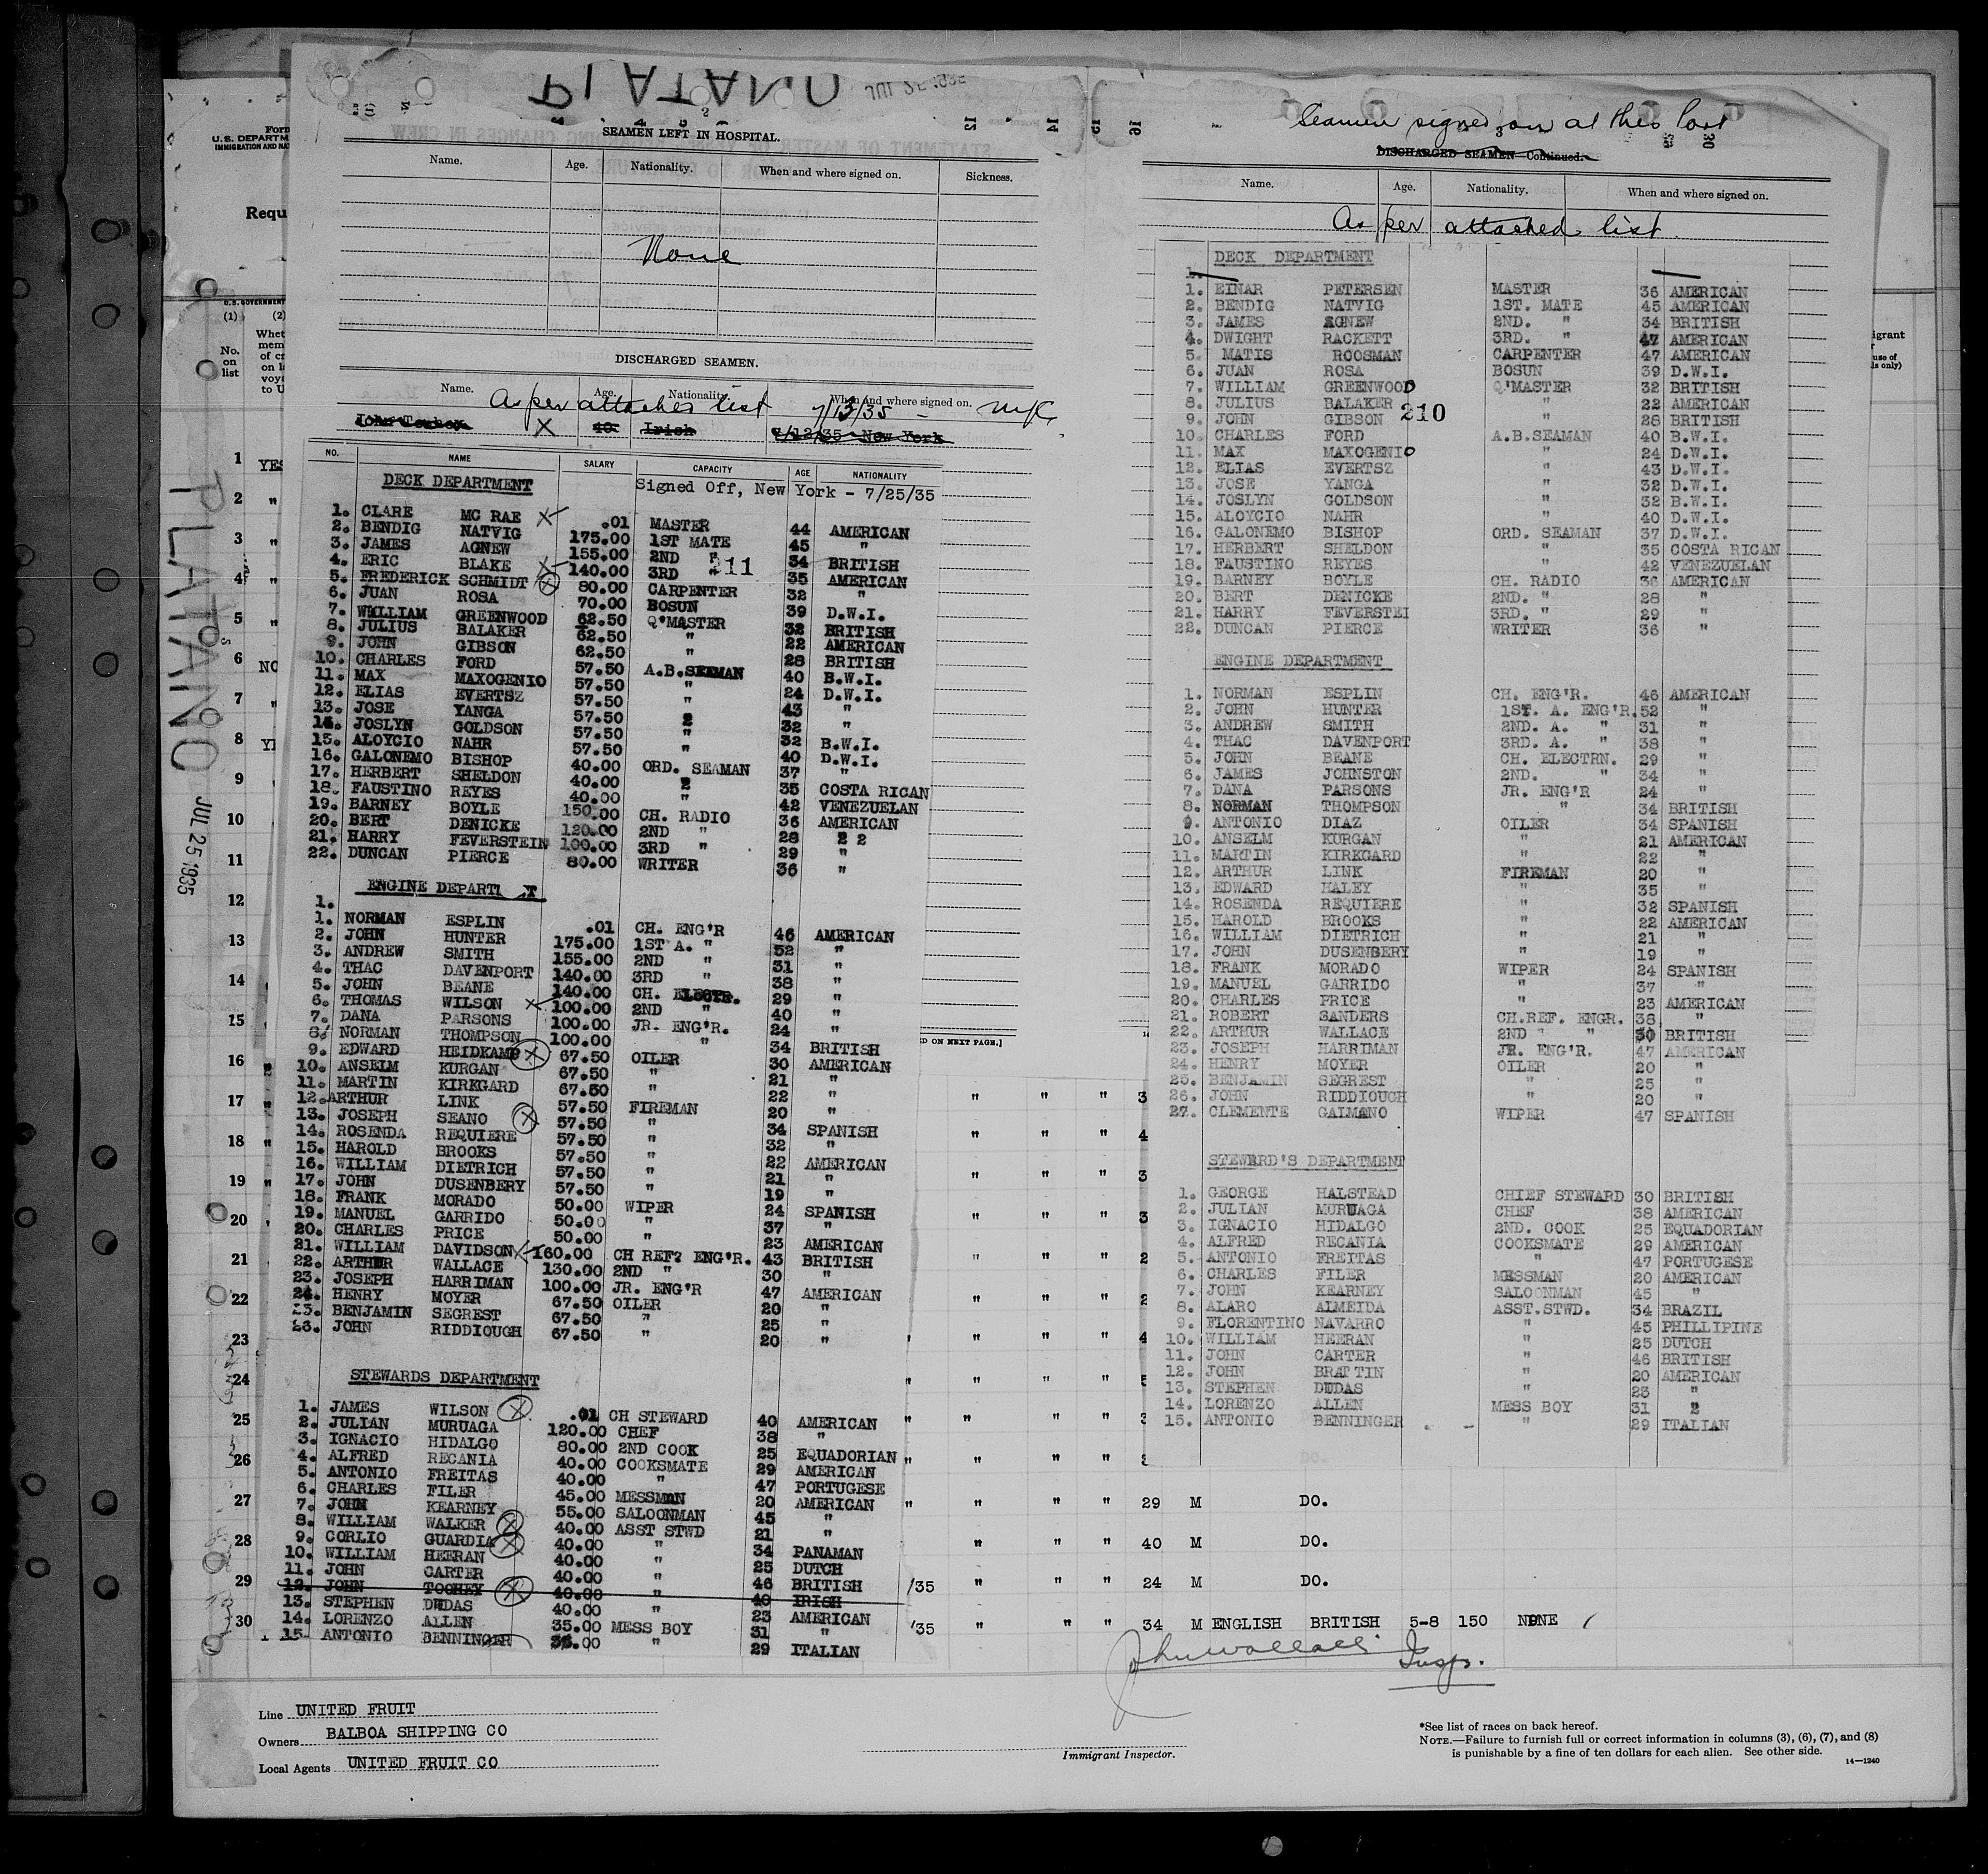 PLATANO
SEAMEN LEFT IN HOSPITAL.
Name. Age. Nationality. When and where signed on. Sickness.
None
DISCHARGED SEAMEN.
Name. Age. Nationality. When and where signed on.
As per attached list 7/13/35 - NYC
X 40 Irish 7/12/35 New York
NO. NAME SALARY CAPACITY AGE NATIONALITY
DECK DEPARTMENT Signed Off, New York - 7/25/35
1. CLARE MC RAE X .01 MASTER 44 AMERICAN
2. BENDIG NATVIG 175.00 1ST MATE 45 "
3. JAMES AGNEW 155.00 2ND " 34 BRITISH
211
4. ERIC BLAKE X 140.00 3RD " 35 AMERICAN
5. FREDERICK SCHMIDT X 80.00 CARPENTER 32 "
6. JUAN ROSA 70.00 BOSUN 39 D.W.I.
7. WILLIAM GREENWOOD 62.50 Q'MASTER 32 BRITISH
8. JULIUS BALAKER 62.50 " 22 AMERICAN
9. JOHN GIBSON 62.50 " 28 BRITISH
10. CHARLES FORD 57.50 A.B.SEAMAN 40 B.W.I.
11. MAX MAXOGENIO 57.50 " 24 D.W.I.
12. ELIAS EVERTSZ 57.50 " 43 "
13. JOSE YANGA 57.50 2 32 "
14. JOSLYN GOLDSON 57.50 " 32 B.W.I.
15. ALOYCIO NAHR 57.50 " 40 D.W.I.
16. GALONEMO BISHOP 40.00 ORD. SEAMAN 37 "
17. HERBERT SHELDON 40.00 2 35 COSTA RICAN
18. FAUSTINO REYES 40.00 " 42 VENEZUELAN
19. BARNEY BOYLE 150.00 CH. RADIO 36 AMERICAN
20. BERT DENICKE 120.00 2ND " 28 2 2
21. HARRY FEVERSTEIN 100.00 3RD " 29 "
22. DUNCAN PIERCE 80.00 WRITER 36 "
ENGINE DEPARTMENT
1.
1. NORMAN ESPLIN .01 CH. ENG'R 46 AMERICAN
2. JOHN HUNTER 175.00 1ST A. " 52 "
3. ANDREW SMITH 155.00 2ND " 31 "
4. THAC DAVENPORT 140.00 3RD " 38 "
5. JOHN BEANE 140.00 CH. ELECTR. 29 "
6. THOMAS WILSON X 100.00 2ND " 40 "
7. DANA PARSONS 100.00 JR. ENG'R. 24 "
8. NORMAN THOMPSON 100.00 " 34 BRITISH
9. EDWARD HEIDKAMP X 67.50 OILER 30 AMERICAN
10. ANSELM KURGAN 67.50 " 21 "
11. MARTIN KIRKGARD 67.50 " 22 "
12. ARTHUR LINK 57.50 FIREMAN 20 "
13. JOSEPH SEANO X 57.50 " 34 SPANISH
14. ROSENDA REQUIERE 57.50 " 32 "
15. HAROLD BROOKS 57.50 " 22 AMERICAN
16. WILLIAM DIETRICH 57.50 " 21 "
17. JOHN DUSENBERY 57.50 " 19 "
18. FRANK MORADO 50.00 WIPER 24 SPANISH
19. MANUEL GARRIDO 50.00 " 37 "
20. CHARLES PRICE 50.00 " 23 AMERICAN
21. WILLIAM DAVIDSON X 160.00 CH REF? ENG'R. 43 BRITISH
22. ARTHUR WALLACE 130.00 2ND " 30 "
23. JOSEPH HARRIMAN 100.00 JR. ENG'R 47 AMERICAN
24. HENRY MOYER 67.50 OILER 20 "
25. BENJAMIN SEGREST 67.50 " 25 "
26. JOHN RIDDIOUGH 67.50 " 20 "
STEWARDS DEPARTMENT
1. JAMES WILSON X .01 CH STEWARD 40 AMERICAN
2. JULIAN MURUAGA 120.00 CHEF 38 "
3. IGNACIO HIDALGO 80.00 2ND COOK 25 EQUADORIAN
4. ALFRED RECANIA 40.00 COOKSMATE 29 AMERICAN
5. ANTONIO FREITAS 40.00 " 47 PORTUGESE
6. CHARLES FILER 45.00 MESSMAN 20 AMERICAN
7. JOHN KEARNEY 55.00 SALOONMAN 45 "
8. WILLIAM WALKER X 40.00 ASST STWD 21 "
9. CORLIO GUARDIA X 40.00 " 34 PANAMAN
10. WILLIAM HEERAN 40.00 " 25 DUTCH
11. JOHN CARTER 40.00 " 46 BRITISH
12. JOHN TOOHEY X 40.00 " 40 IRISH
13. STEPHEN DUDAS 40.00 " 23 AMERICAN
14. LORENZO ALLEN 35.00 MESS BOY 31 "
15. ANTONIO BENNINGER 35.00 " 29 ITALIAN
Seamen signed on at this Port
DISCHARGED SEAMEN—Continued.
Name. Age. Nationality. When and where signed on.
As per attached list
DECK DEPARTMENT
1.
1. EINAR PETERSEN MASTER 36 AMERICAN
2. BENDIG NATVIG 1ST. MATE 45 AMERICAN
3. JAMES AGNEW 2ND. " 34 BRITISH
4. DWIGHT RACKETT 3RD. " 47 AMERICAN
5. MATIS ROOSMAN CARPENTER 47 AMERICAN
6. JUAN ROSA BOSUN 39 D.W.I.
7. WILLIAM GREENWOOD Q'MASTER 32 BRITISH
8. JULIUS BALAKER " 22 AMERICAN
210
9. JOHN GIBSON " 28 BRITISH
10. CHARLES FORD A.B.SEAMAN 40 B.W.I.
11. MAX MAXOGENIO " 24 D.W.I.
12. ELIAS EVERTSZ " 43 D.W.I.
13. JOSE YANGA " 32 D.W.I.
14. JOSLYN GOLDSON " 32 B.W.I.
15. ALOYCIO NAHR " 40 D.W.I.
16. GALONEMO BISHOP ORD. SEAMAN 37 D.W.I.
17. HERBERT SHELDON " 35 COSTA RICAN
18. FAUSTINO REYES " 42 VENEZUELAN
19. BARNEY BOYLE CH. RADIO 36 AMERICAN
20. BERT DENICKE 2ND. " 28 "
21. HARRY FEVERSTEI 3RD. " 29 "
22. DUNCAN PIERCE WRITER 36 "
ENGINE DEPARTMENT
1. NORMAN ESPLIN CH. ENG'R. 46 AMERICAN
2. JOHN HUNTER 1ST. A. ENG'R. 52 "
3. ANDREW SMITH 2ND. A. " 31 "
4. THAC DAVENPORT 3RD. A. " 38 "
5. JOHN BEANE CH. ELECTRN. 29 "
6. JAMES JOHNSTON 2ND. " 34 "
7. DANA PARSONS JR. ENG'R 24 "
8. NORMAN THOMPSON " 34 BRITISH
9. ANTONIO DIAZ OILER 34 SPANISH
10. ANSELM KURGAN " 21 AMERICAN
11. MARTIN KIRKGARD " 22 "
12. ARTHUR LINK FIREMAN 20 "
13. EDWARD HALEY " 35 "
14. ROSENDA REQUIERE " 32 SPANISH
15. HAROLD BROOKS " 22 AMERICAN
16. WILLIAM DIETRICH " 21 "
17. JOHN DUSENBERY " 19 "
18. FRANK MORADO WIPER 24 SPANISH
19. MANUEL GARRIDO " 37 "
20. CHARLES PRICE " 23 AMERICAN
21. ROBERT SANDERS CH.REF. ENGR. 38 "
22. ARTHUR WALLACE 2ND " " 30 BRITISH
23. JOSEPH HARRIMAN JR. ENG'R. 47 AMERICAN
24. HENRY MOYER OILER 20 "
25. BENJAMIN SEGREST " 25 "
26. JOHN RIDDIOUGH " 20 "
27. CLEMENTE GALMANO WIPER 47 SPANISH
STEWARD'S DEPARTMENT
1. GEORGE HALSTEAD CHIEF STEWARD 30 BRITISH
2. JULIAN MURUAGA CHEF 38 AMERICAN
3. IGNACIO HIDALGO 2ND. COOK 25 EQUADORIAN
4. ALFRED RECANIA COOKSMATE 29 AMERICAN
5. ANTONIO FREITAS " 47 PORTUGESE
6. CHARLES FILER MESSMAN 20 AMERICAN
7. JOHN KEARNEY SALOONMAN 45 "
8. ALARO ALMEIDA ASST.STWD. 34 BRAZIL
9. FLORENTINO NAVARRO " 45 PHILLIPINE
10. WILLIAM HEERAN " 25 DUTCH
11. JOHN CARTER " 46 BRITISH
12. JOHN BRATTIN " 20 AMERICAN
13. STEPHEN DUDAS " 23 "
14. LORENZO ALLEN MESS BOY 31 2
15. ANTONIO BENNINGER " 29 ITALIAN
PLATANO
JUL 25 1935
29 M DO.
40 M DO.
24 M DO.
34 M ENGLISH BRITISH 5-8 150 NONE
John Wallace Insp.
Line UNITED FRUIT
Owners BALBOA SHIPPING CO
Local Agents UNITED FRUIT CO
Immigrant Inspector.
*See list of races on back hereof.
NOTE.—Failure to furnish full or correct information in columns (3), (6), (7), and (8)
is punishable by a fine of ten dollars for each alien. See other side.
14—1240